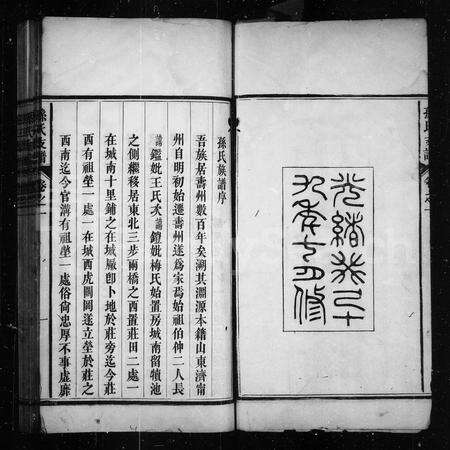 光緒葵巳十
九年七月修
孫氏族譜序
吾族居壽州數百年矣溯其淵源本籍山東濟甯
州自明初始遷壽州遂爲家焉始祖伯仲二人長
諱鑑妣王氏次諱鎧妣梅氏始置房城南留犢池
之側繼移居東北三步兩橋之西置莊田二處一
在城南十里鋪之在城廠卽卜地於莊旁迄今莊
西有祖塋一處一在城西虎圊圊遂立塋於莊之
西南迄今官溝有祖塋一處俗尚忠厚不事虛靡
孫氏支譜
卷之一